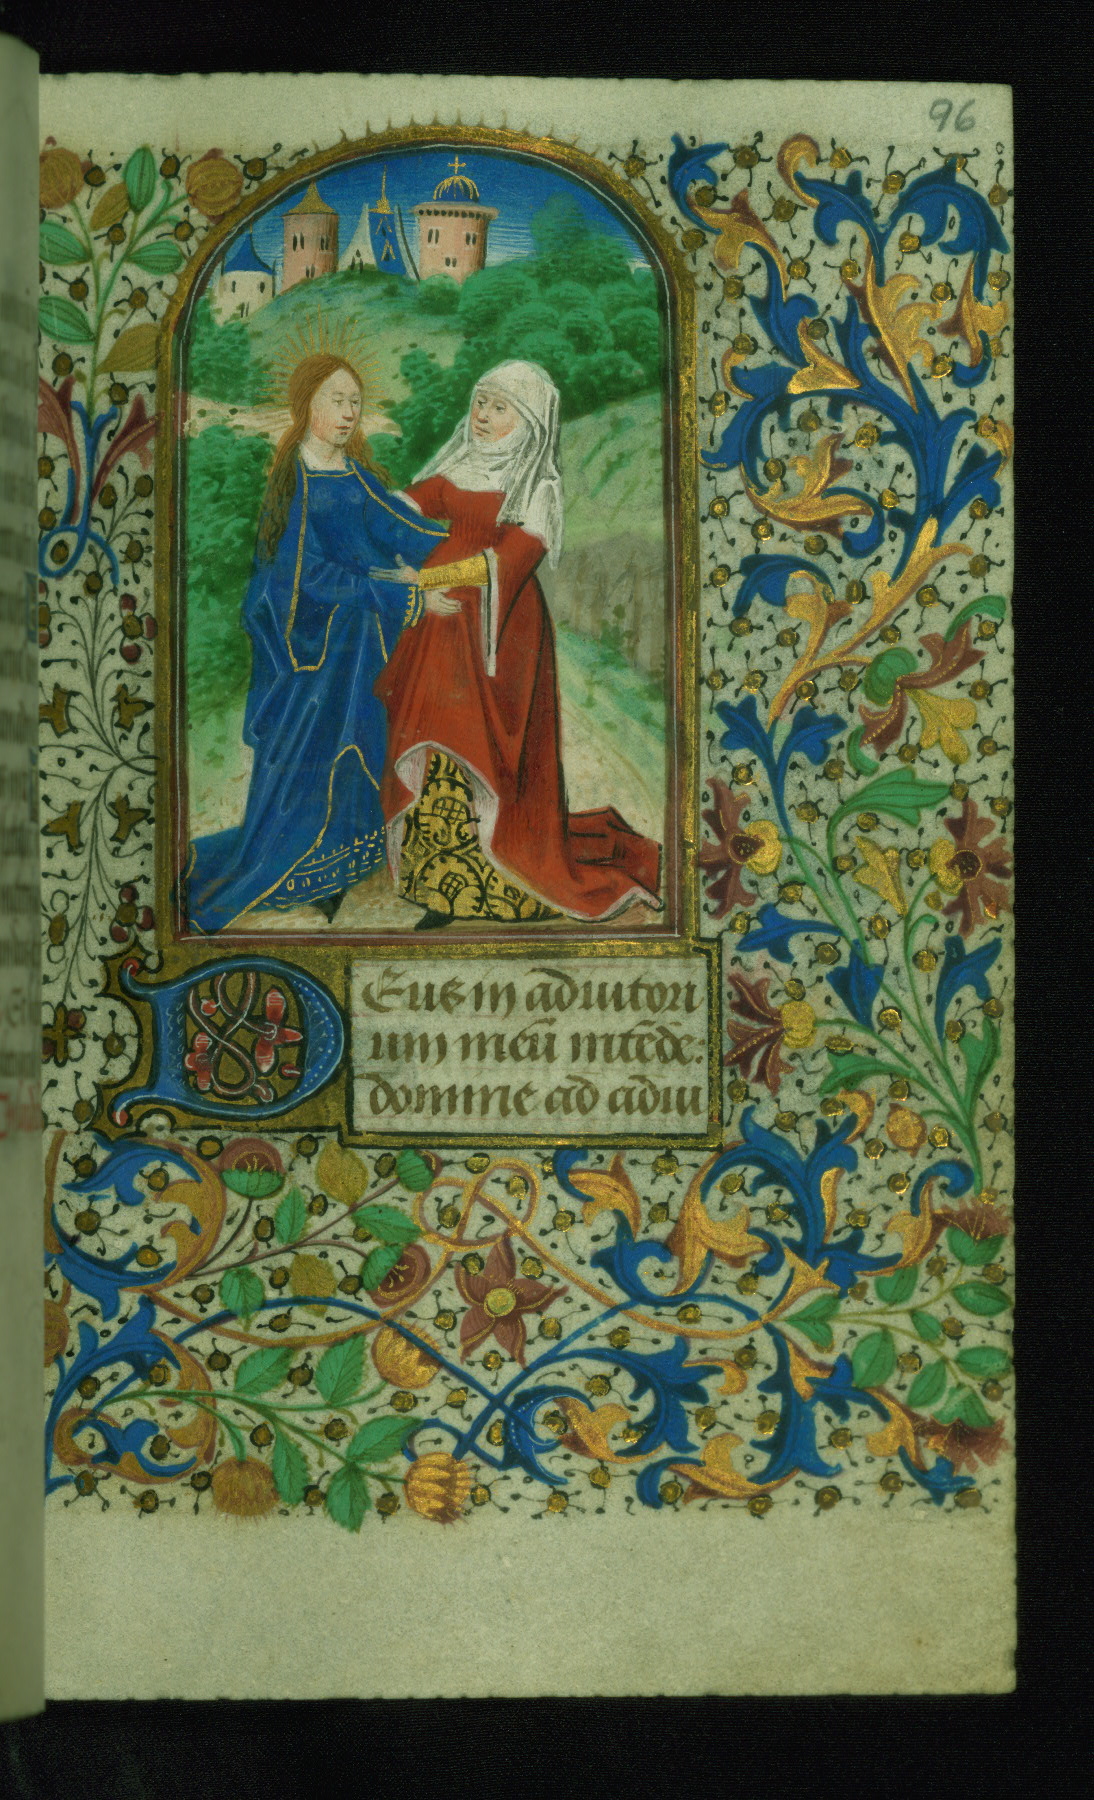 96
Deus in adiutori
um meū intēde:
domine ad adiu